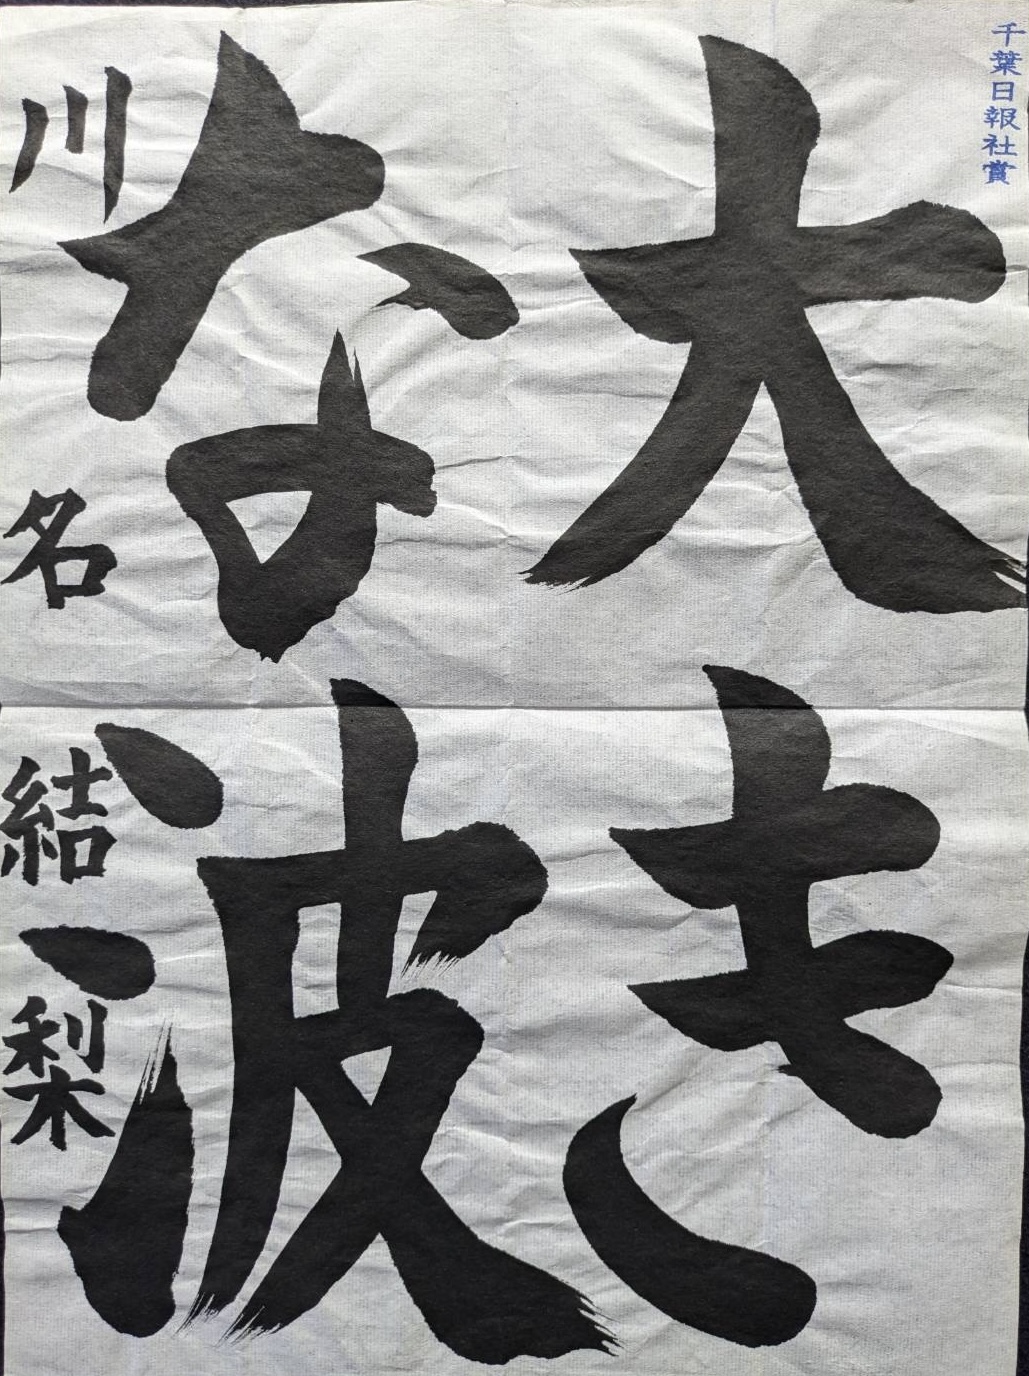 千葉日報社賞
大き
な波
川名結梨